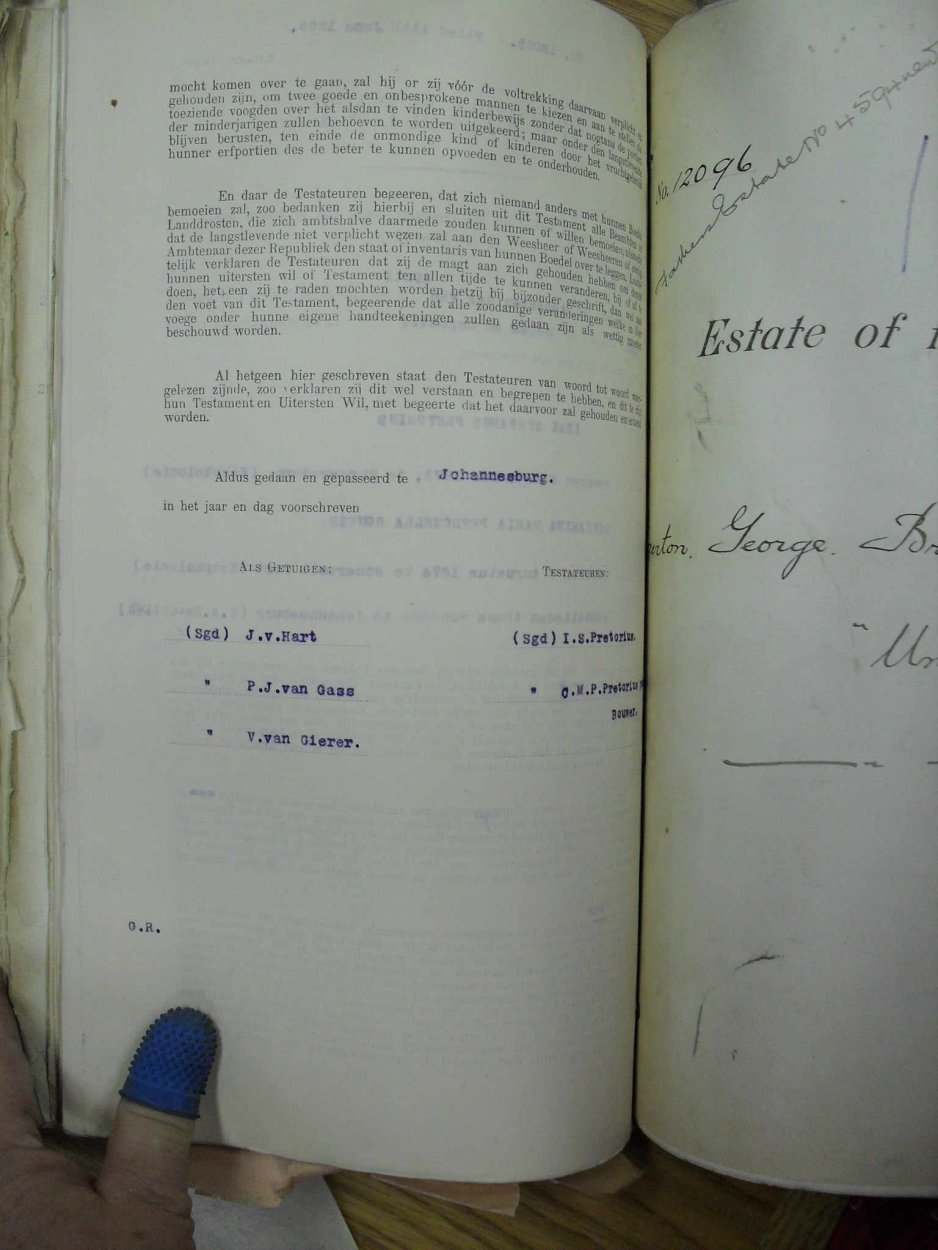 mocht komen over te gaan, zal hij or zij vóór de voltrekking daarvan verplicht en
gehouden zijn, om twee goede en onbesprokene mannen te kiezen en aan te stellen als
toeziende voogden over het alsdan te vinden kinderbewijs zonder dat nogtans de portien
der minderjarigen zullen behoeven te worden uitgekeerd; maar onder den langstlevende
blijven berusten, ten einde de onmondige kind of kinderen door het vruchtgebruik
hunner erfportien des de beter te kunnen opvoeden en te onderhouden.
En daar de Testateuren begeeren, dat zich niemand anders met hunnen Boedel
bemoeien zal, zoo bedanken zij hierbij en sluiten uit dit Testament alle
Landdrosten, die zich ambtshalve daarmede zouden kunnen of willen bemoeien,
dat de langstlevende niet verplicht wezen zal aan den Weesheer of Weesheeren of
Ambtenaar dezer Republiek den staat of inventaris van hunnen Boedel over te leggen.
telijk verklaren de Testateuren dat zij de magt aan zich gehouden hebben om
hunnen uitersten wil of Testament ten allen tijde te kunnen veranderen, bij of af te
doen, hetzeen zij te raden mochten worden hetzij bij bijzonder geschrift, dan wel aan
den voet van dit Testament, begeerende dat alle zoodanige veranderingen welke in dier
voege onder hunne eigene handteekeningen zullen gedaan zijn als wettig moeten
beschouwd worden.
Al hetgeen hier geschreven staat den Testateuren van woord tot woord
gelezen zijnde, zoo verklaren zij dit wel verstaan en begrepen te hebben, en dit te zijn
hun Testament en Uitersten Wil, met begeerte dat het daarvoor zal gehouden en erkend
worden.
Aldus gedaan en gepasseerd te Johannesburg.
in het jaar en dag voorschreven
ALS GETUIGEN: TESTATEUREN:
(Sgd) J.v.Hart (Sgd) I.S.Pretorius.
" P.J.van Gass " C.M.P.Pretorius
Bouwer.
" V.van Gierer.
G.R.
No. 12096
Fathers Estate No 4594
Estate of
George. Br
"Un